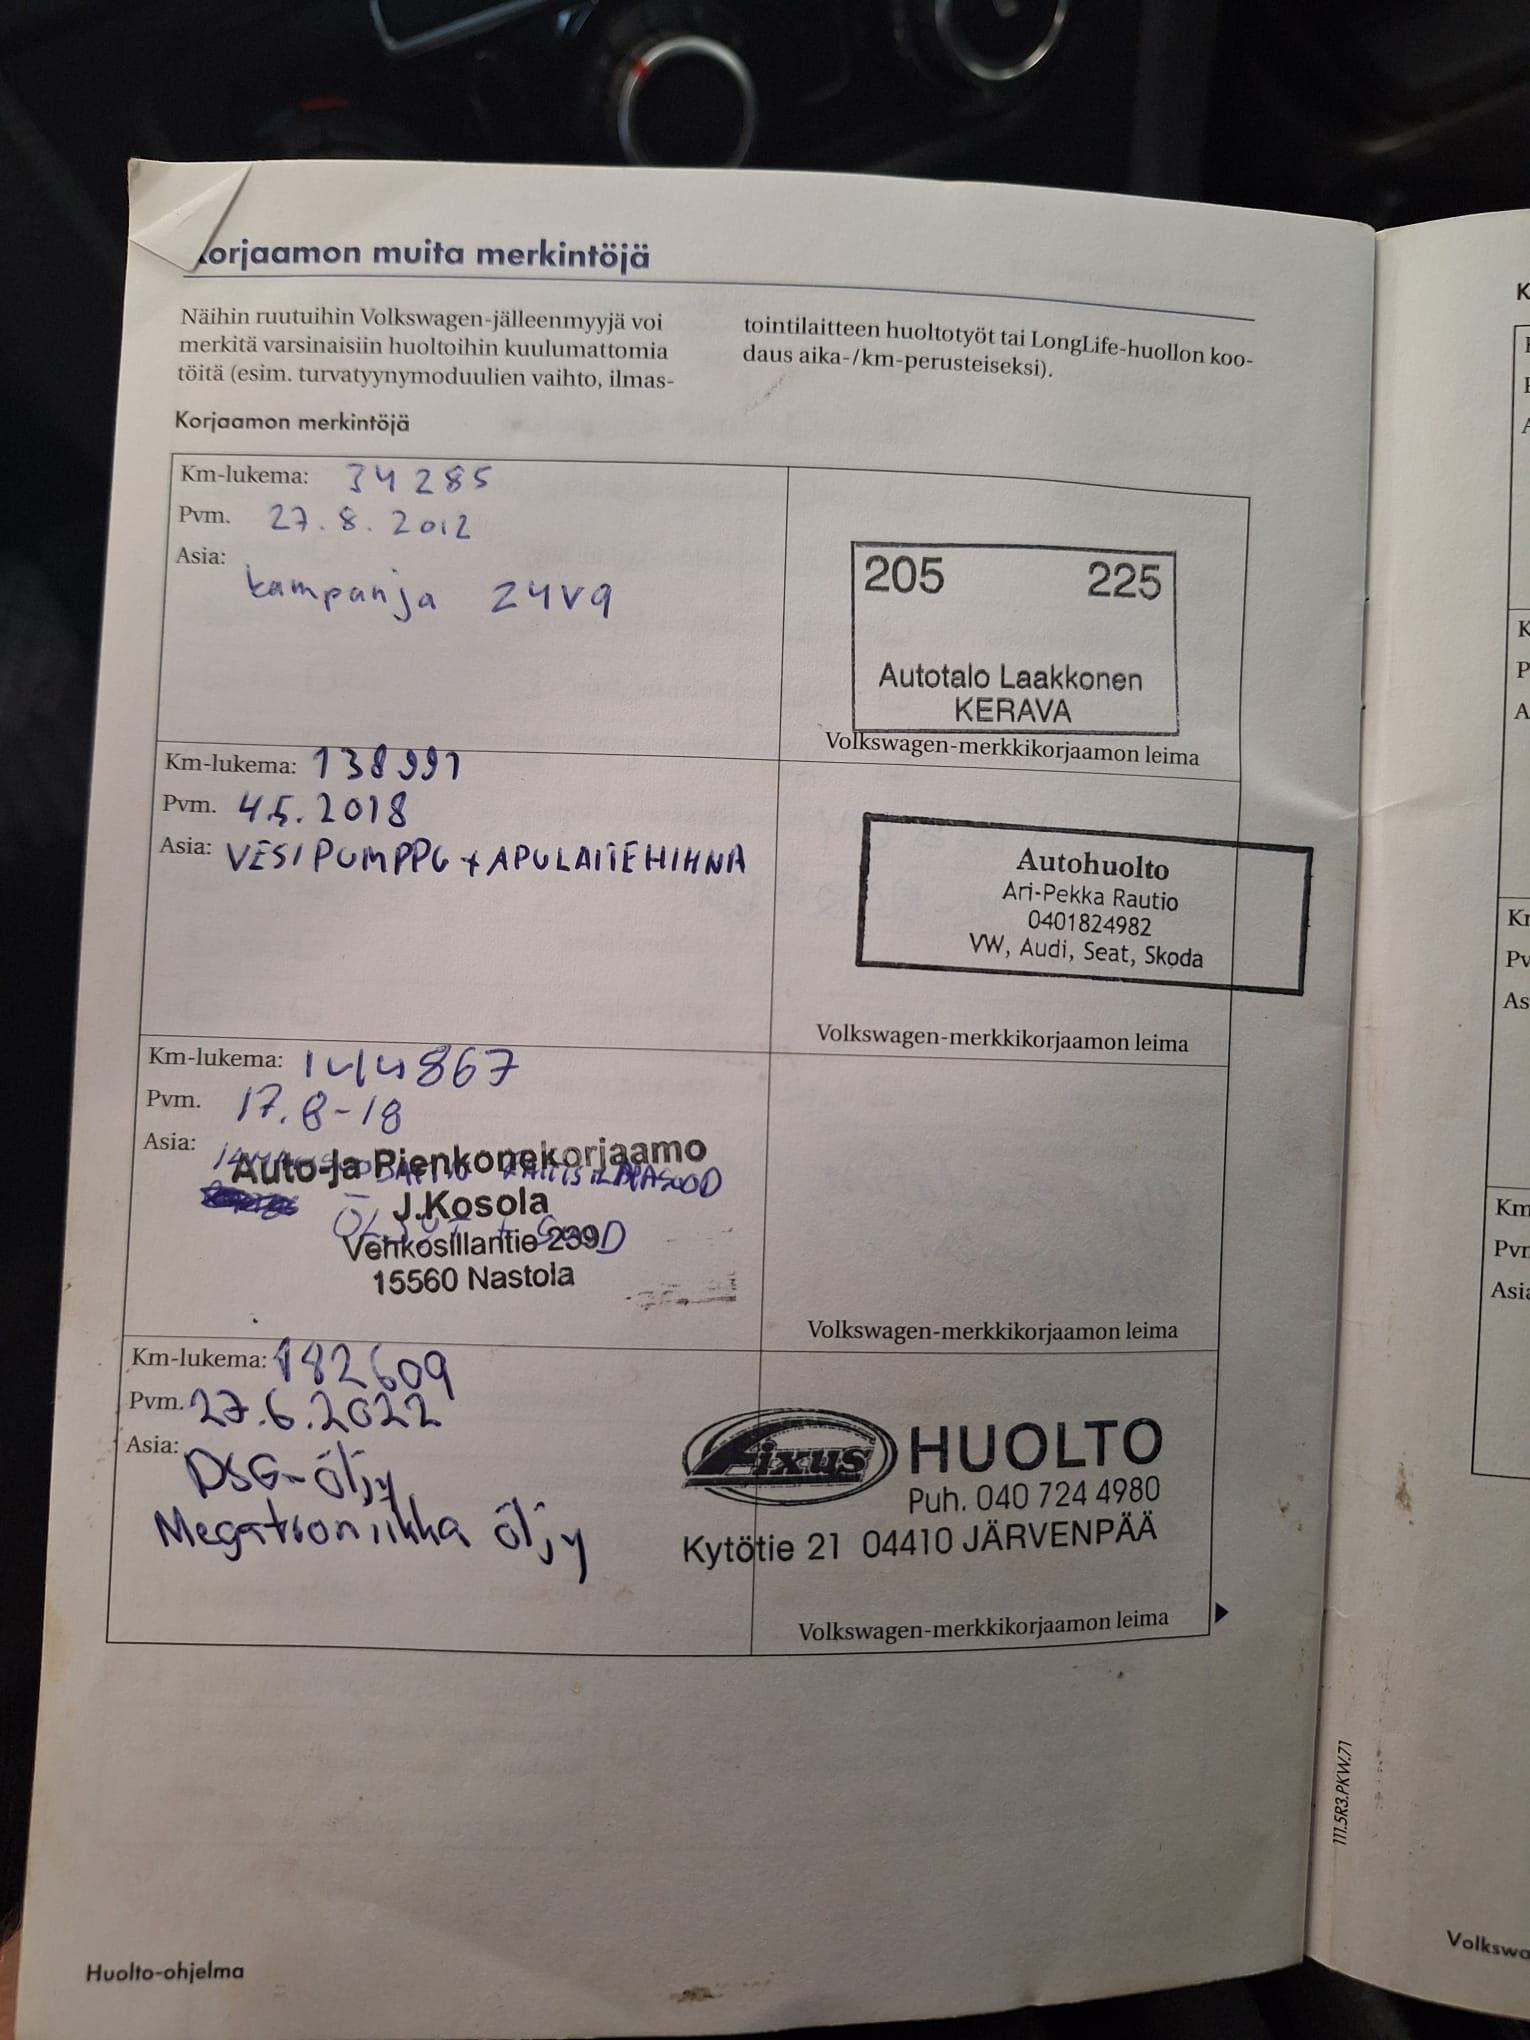 orjaamon muita merkintöjä
Näihin ruutuihin Volkswagen-jälleenmyyjä voi
merkitä varsinaisiin huoltoihin kuulumattomia
töitä (esim. turvatyynymoduulien vaihto, ilmas-
tointilaitteen huoltotyöt tai LongLife-huollon koo-
daus aika-/km-perusteiseksi).
Korjaamon merkintöjä
Km-lukema: 34285
Pvm. 27.8.2012
Asia:
kampanja 24V9
205 225
Autotalo Laakkonen
KERAVA
Volkswagen-merkkikorjaamon leima
Km-lukema: 138991
Pvm. 4.5.2018
Asia: VESIPUMPPU + APULAITEHIHNA
Autohuolto
Ari-Pekka Rautio
0401824982
VW, Audi, Seat, Skoda
Volkswagen-merkkikorjaamon leima
Km-lukema: 144867
Pvm. 17.8-18
Asia:
Auto-Ja Pienkonekorjaamo
J.Kosola
Vehkosillantie 239
15560 Nastola
Volkswagen-merkkikorjaamon leima
Km-lukema: 182609
Pvm. 27.6.2022
Asia:
DSG-öljy
Megatroniikka öljy
Fixus HUOLTO
Puh. 040 724 4980
Kytötie 21 04410 JÄRVENPÄÄ
Volkswagen-merkkikorjaamon leima
111.5R3.PKW.71
Huolto-ohjelma
Volkswa
K
P
A
Kn
Pv
As
Km
Pvn
Asia